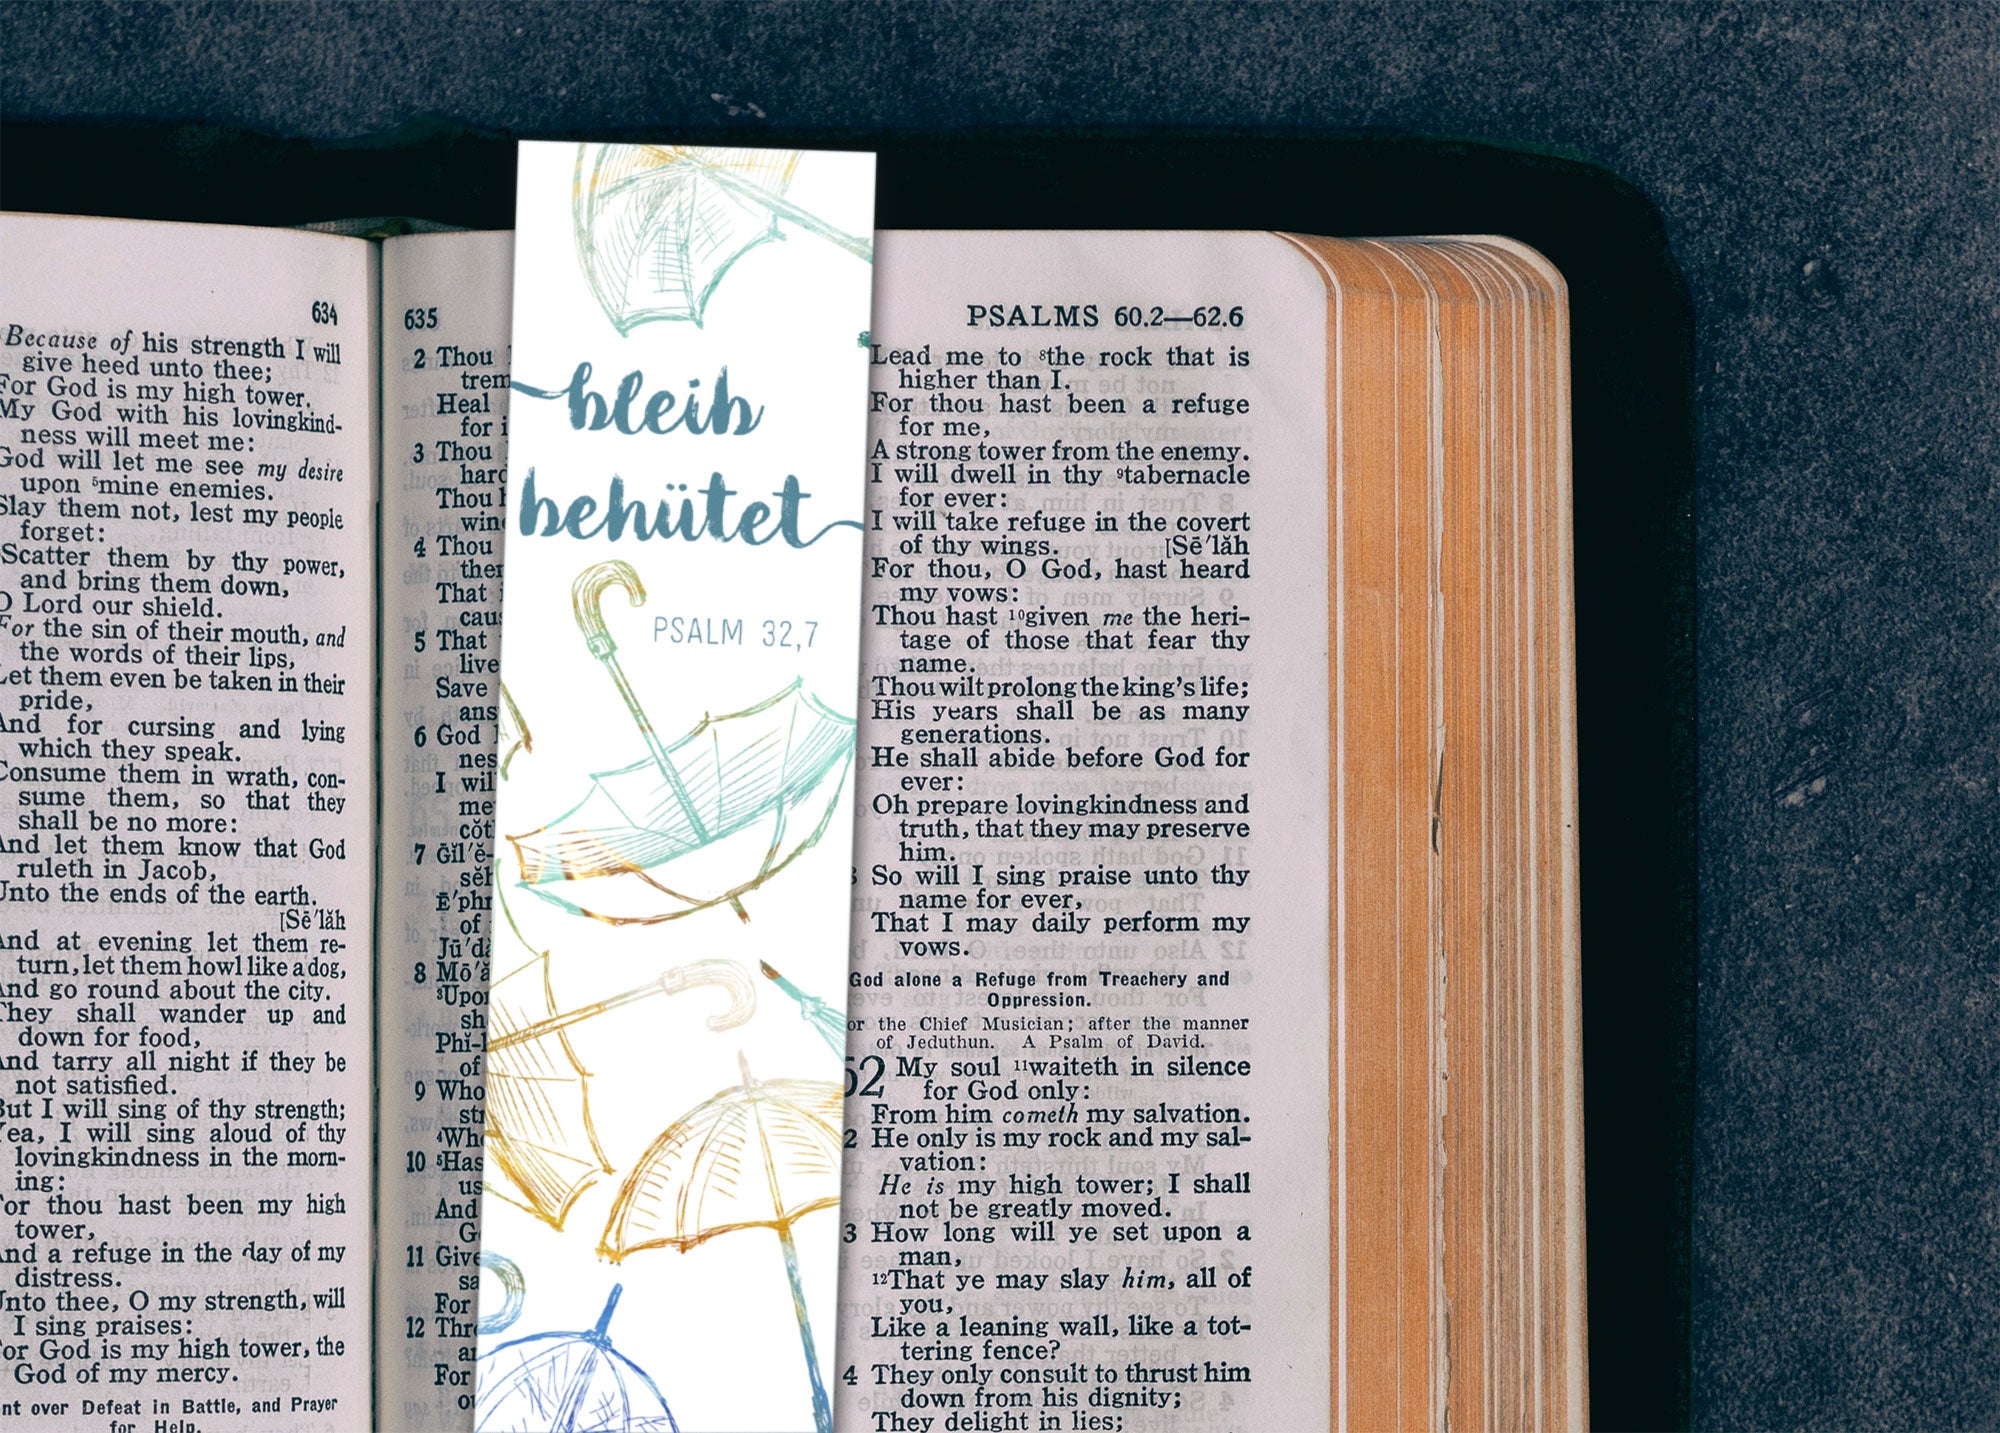 634
Because of his strength I will
give heed unto thee;
For God is my high tower.
My God with his lovingkind-
ness will meet me:
God will let me see my desire
upon ⁵mine enemies.
Slay them not, lest my people
forget:
Scatter them by thy power,
and bring them down,
O Lord our shield.
For the sin of their mouth, and
the words of their lips,
Let them even be taken in their
pride,
And for cursing and lying
which they speak.
Consume them in wrath, con-
sume them, so that they
shall be no more:
And let them know that God
ruleth in Jacob,
Unto the ends of the earth.
[Sē′lăh
And at evening let them re-
turn, let them howl like a dog,
And go round about the city.
They shall wander up and
down for food,
And tarry all night if they be
not satisfied.
But I will sing of thy strength;
Yea, I will sing aloud of thy
lovingkindness in the morn-
ing:
For thou hast been my high
tower,
And a refuge in the day of my
distress.
Unto thee, O my strength, will
I sing praises:
For God is my high tower, the
God of my mercy.
over Defeat in Battle, and Prayer
for Help.
635
2 Thou
Heal
for
3 Thou
Thou
4 Thou
That
5 That
Save
6 God
I
7
of
8
³Upon
of
9 Who
10 ⁵Has
us
And
11 Give
For
12
For
bleib
behütet
PSALM 32,7
PSALMS 60.2—62.6
Lead me to ⁸the rock that is
higher than I.
For thou hast been a refuge
for me,
A strong tower from the enemy.
I will dwell in thy ⁹tabernacle
for ever:
I will take refuge in the covert
of thy wings. [Sē′lăh
For thou, O God, hast heard
my vows:
Thou hast ¹⁰given me the heri-
tage of those that fear thy
name.
Thou wilt prolong the king's life;
His years shall be as many
generations.
He shall abide before God for
ever:
Oh prepare lovingkindness and
truth, that they may preserve
him.
So will I sing praise unto thy
name for ever,
That I may daily perform my
vows.
God alone a Refuge from Treachery and
Oppression.
the Chief Musician; after the manner
of Jeduthun. A Psalm of David.
62 My soul ¹¹waiteth in silence
for God only:
From him cometh my salvation.
2 He only is my rock and my sal-
vation:
He is my high tower; I shall
not be greatly moved.
3 How long will ye set upon a
man,
¹²That ye may slay him, all of
you,
Like a leaning wall, like a tot-
tering fence?
4 They only consult to thrust him
down from his dignity;
They delight in lies;